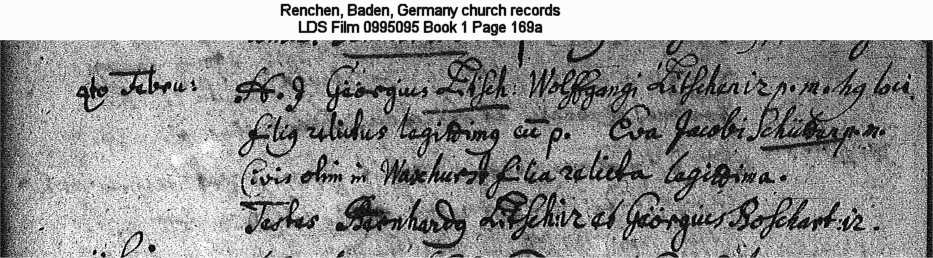 Renchen, Baden, Germany church records
LDS Film 0995095 Book 1 Page 169a
4to Febru: H. J Georgius Litsch: Wolffgangi Litschen ir p. m. hg loci
filig relictus legittimg cū p. Eva Jacobi p. m.
Civis olim in Waxhurst filia relicta legittima.
Testes Bernhardg Litsch: ir et Georgius Boschart: ir.